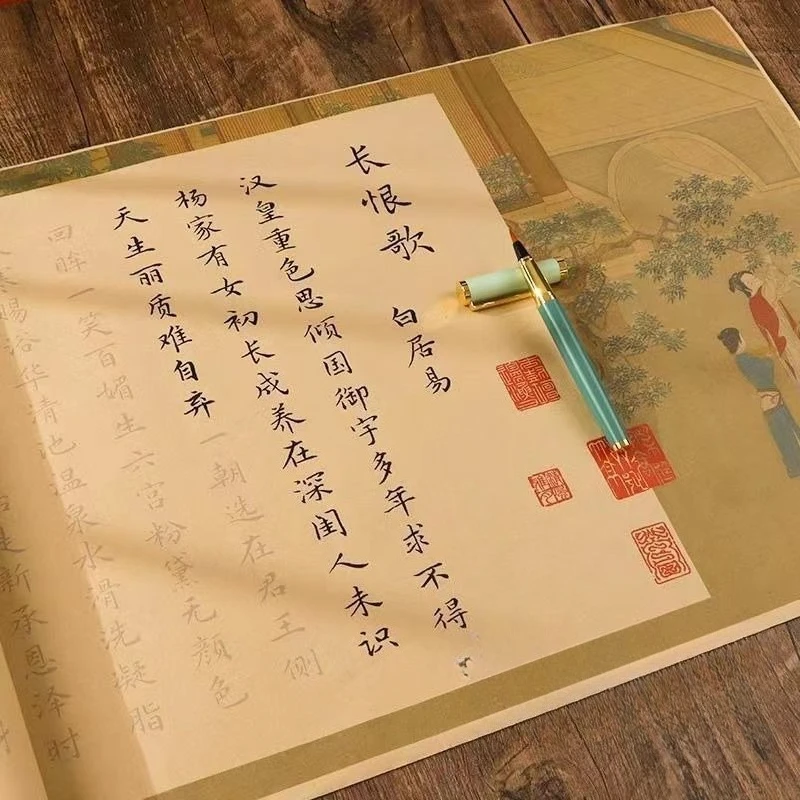 长恨歌 白居易
汉皇重色思倾国御宇多年求不得
杨家有女初长成养在深闺人未识
天生丽质难自弃一朝选在君王侧
回眸一笑百媚生六宫粉黛无颜色
寒赐浴华清池温泉水滑洗凝脂
是新承恩泽时